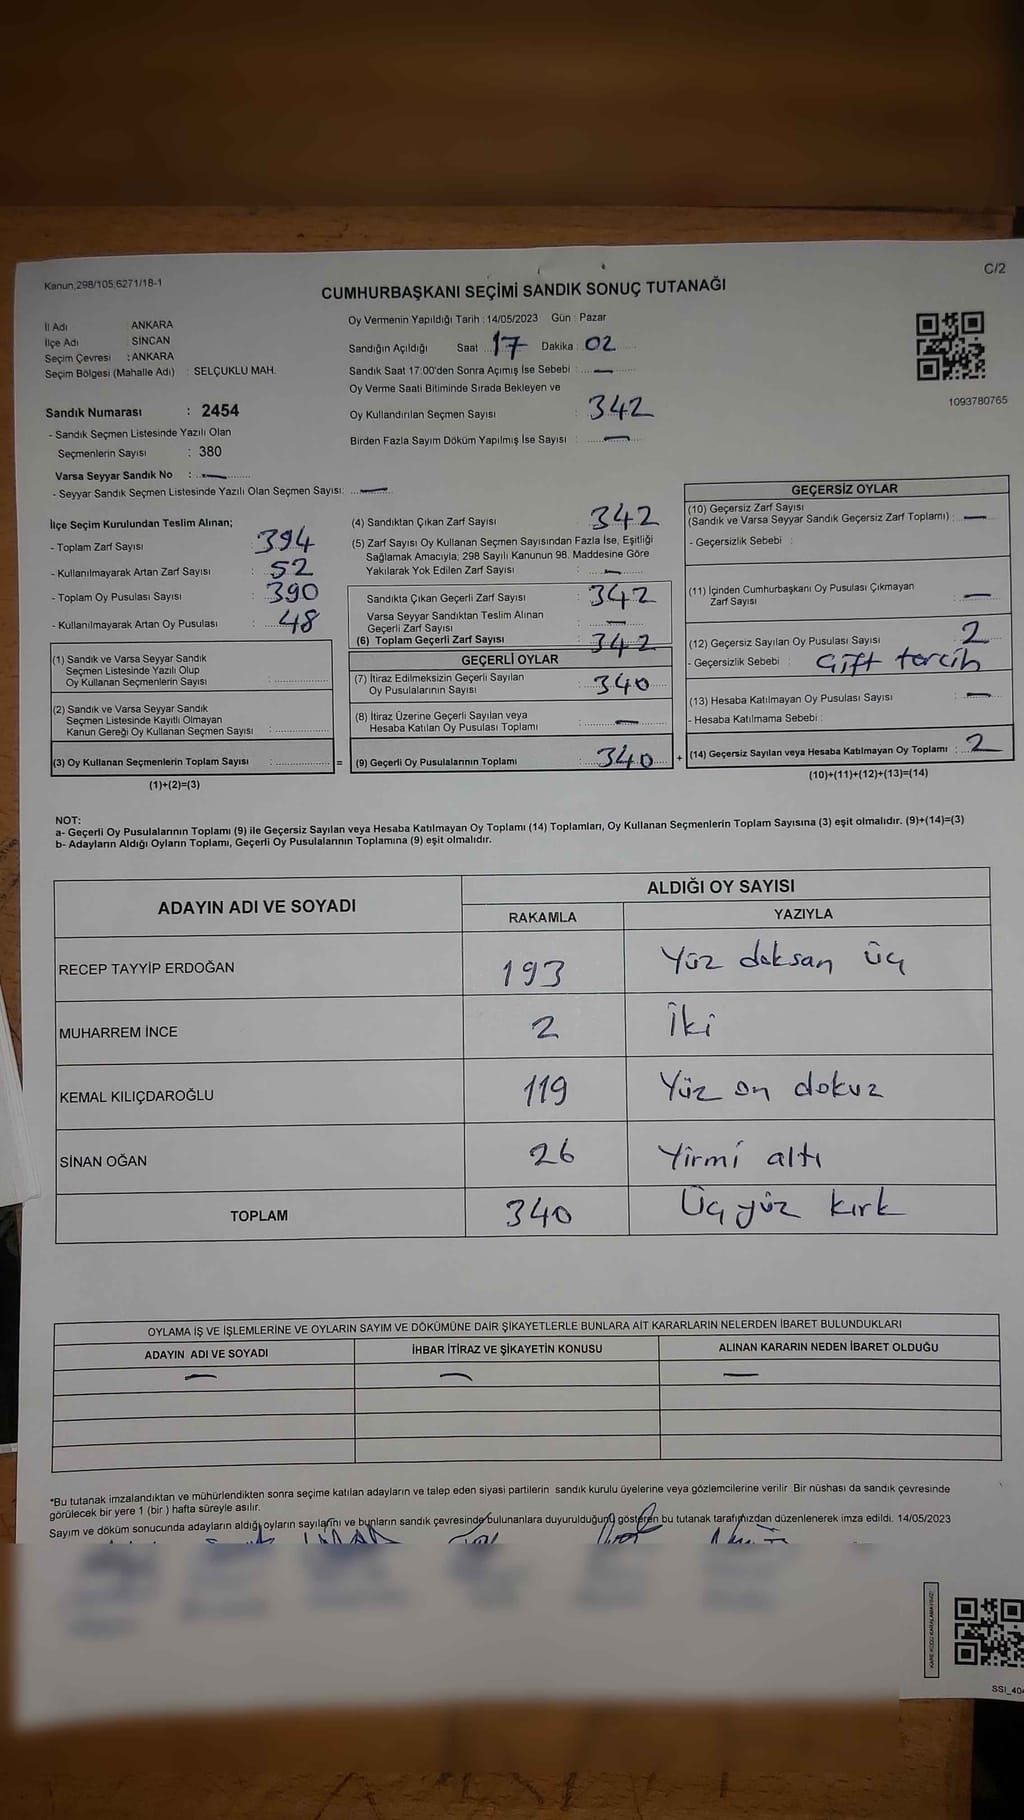 Kanun,298/105,6271/18-1
C/2
CUMHURBAŞKANI SEÇİMİ SANDIK SONUÇ TUTANAĞI
İl Adı ANKARA
İlçe Adı : SİNCAN
Seçim Çevresi : ANKARA
Seçim Bölgesi (Mahalle Adı) : SELÇUKLU MAH.
Sandık Numarası : 2454
- Sandık Seçmen Listesinde Yazılı Olan
Seçmenlerin Sayısı : 380
Varsa Seyyar Sandık No : —
- Seyyar Sandık Seçmen Listesinde Yazılı Olan Seçmen Sayısı: —
Oy Vermenin Yapıldığı Tarih : 14/05/2023 Gün : Pazar
Sandığın Açıldığı Saat 17 Dakika : 02
Sandık Saat 17:00'den Sonra Açımış İse Sebebi : —
Oy Verme Saati Bitiminde Sırada Bekleyen ve
Oy Kullandırılan Seçmen Sayısı : 342
Birden Fazla Sayım Döküm Yapılmış İse Sayısı : —
1093780765
İlçe Seçim Kurulundan Teslim Alınan;
- Toplam Zarf Sayısı : 394
- Kullanılmayarak Artan Zarf Sayısı : 52
- Toplam Oy Pusulası Sayısı : 390
- Kullanılmayarak Artan Oy Pusulası : 48
(1) Sandık ve Varsa Seyyar Sandık
Seçmen Listesinde Yazılı Olup
Oy Kullanan Seçmenlerin Sayısı :
(2) Sandık ve Varsa Seyyar Sandık
Seçmen Listesinde Kayıtlı Olmayan
Kanun Gereği Oy Kullanan Seçmen Sayısı :
(3) Oy Kullanan Seçmenlerin Toplam Sayısı : =
(1)+(2)=(3)
(4) Sandıktan Çıkan Zarf Sayısı : 342
(5) Zarf Sayısı Oy Kullanan Seçmen Sayısından Fazla İse, Eşitliği
Sağlamak Amacıyla; 298 Sayılı Kanunun 98. Maddesine Göre
Yakılarak Yok Edilen Zarf Sayısı : —
Sandıkta Çıkan Geçerli Zarf Sayısı : 342
Varsa Seyyar Sandıktan Teslim Alınan
Geçerli Zarf Sayısı : —
(6) Toplam Geçerli Zarf Sayısı 342
GEÇERLİ OYLAR
(7) İtiraz Edilmeksizin Geçerli Sayılan
Oy Pusulalarının Sayısı : 340
(8) İtiraz Üzerine Geçerli Sayılan veya
Hesaba Katılan Oy Pusulası Toplamı : —
(9) Geçerli Oy Pusulalarının Toplamı : 340 +
GEÇERSİZ OYLAR
(10) Geçersiz Zarf Sayısı
(Sandık ve Varsa Seyyar Sandık Geçersiz Zarf Toplamı) : —
- Geçersizlik Sebebi :
(11) İçinden Cumhurbaşkanı Oy Pusulası Çıkmayan
Zarf Sayısı : —
(12) Geçersiz Sayılan Oy Pusulası Sayısı : 2
- Geçersizlik Sebebi : Çift tercih
(13) Hesaba Katılmayan Oy Pusulası Sayısı : —
- Hesaba Katılmama Sebebi :
(14) Geçersiz Sayılan veya Hesaba Katılmayan Oy Toplamı : 2
(10)+(11)+(12)+(13)=(14)
NOT:
a- Geçerli Oy Pusulalarının Toplamı (9) ile Geçersiz Sayılan veya Hesaba Katılmayan Oy Toplamı (14) Toplamları, Oy Kullanan Seçmenlerin Toplam Sayısına (3) eşit olmalıdır. (9)+(14)=(3)
b- Adayların Aldığı Oyların Toplamı, Geçerli Oy Pusulalarının Toplamına (9) eşit olmalıdır.
ADAYIN ADI VE SOYADI ALDIĞI OY SAYISI
RAKAMLA YAZIYLA
RECEP TAYYİP ERDOĞAN 193 Yüz doksan üç
MUHARREM İNCE 2 İki
KEMAL KILIÇDAROĞLU 119 Yüz on dokuz
SİNAN OĞAN 26 Yirmi altı
TOPLAM 340 Üç yüz kırk
OYLAMA İŞ VE İŞLEMLERİNE VE OYLARIN SAYIM VE DÖKÜMÜNE DAİR ŞİKAYETLERLE BUNLARA AİT KARARLARIN NELERDEN İBARET BULUNDUKLARI
ADAYIN ADI VE SOYADI İHBAR İTİRAZ VE ŞİKAYETİN KONUSU ALINAN KARARIN NEDEN İBARET OLDUĞU
— — —
*Bu tutanak imzalandıktan ve mühürlendikten sonra seçime katılan adayların ve talep eden siyasi partilerin sandık kurulu üyelerine veya gözlemcilerine verilir Bir nüshası da sandık çevresinde
görülecek bir yere 1 (bir ) hafta süreyle asılır.
Sayım ve döküm sonucunda adayların aldığı oyların sayılarını ve bunların sandık çevresinde bulunanlara duyurulduğunu gösteren bu tutanak tarafımızdan düzenlenerek imza edildi. 14/05/2023
KARE KODU KARALAMAYINIZ!
SSI_40